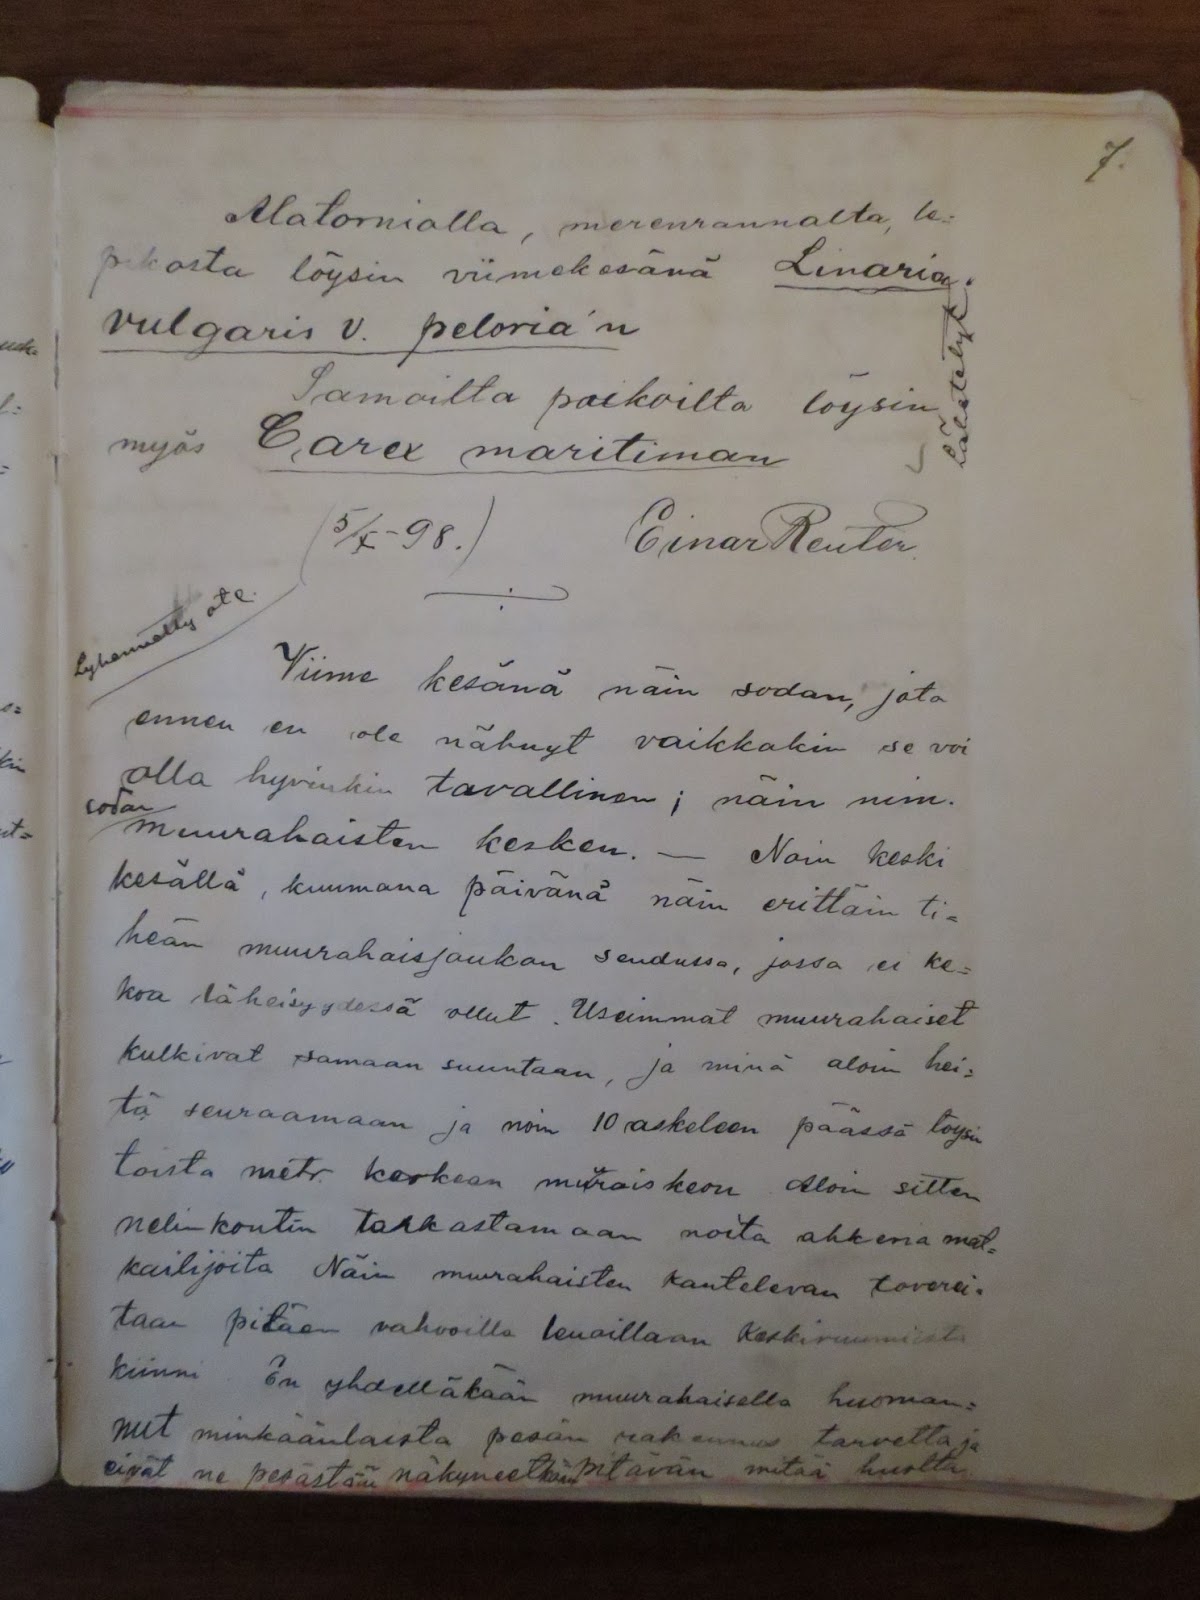 7.
Alatornialla, merenrannalta, le=
pikosta löysin viimekesänä Linaria
vulgaris v. peloria'n
Samoilta paikoilta löysin
myös Carex maritiman
(5/X-98.) Einar Reuter.
Lyhennetty ote.
Viime kesänä näin sodan, jota
ennen en ole nähnyt vaikkakin se voi
olla hyvinkin tavallinen; näin nim.
sodan
muurahaisten kesken. — Noin keski
kesällä, kuumana päivänä näin erittäin ti=
heän muurahaisjoukon seudussa, jossa ei ke=
koa läheisyydessä ollut. Useimmat muurahaiset
kulkivat samaan suuntaan, ja minä aloin hei=
tä seuraamaan ja noin 10 askeleen päässä löysin
toista metr. korkean muuraiskeon Aloin sitten
nelinkontin tarkastamaan noita ahkeria mat=
kailijoita Näin muurahaisten kantelevan toverei=
taan pitäen vahvoilla leuoillaan keskiruumiista
kiinni. En yhdelläkään muurahaisella huoman=
nut minkäänlaista pesän rakennus tarvetta ja
eivät ne pesästään näkyneet pitävän mitää huolta